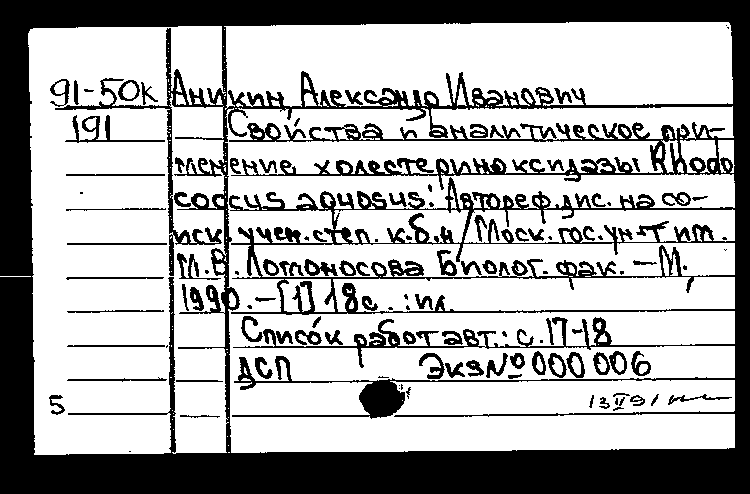 91-50к Аникин, Александр Иванович
191 Свойства и аналитическое при-
менение холестериноксидазы Rhodo
coccus aquosus: Автореф.дис. на со-
иск. учен.степ. к.б.н/Моск.гос.ун-т им.
М.В. Ломоносова. Биолог. фак. – М.,
1990. – [1] 18с. : ил.
Список работ авт.: с. 17-18
ДСП Экз № 000 006
5 13 V 91